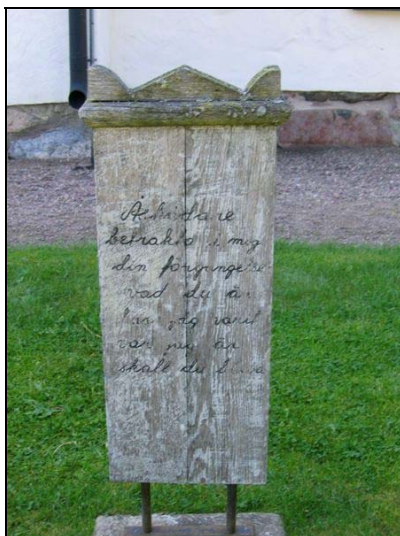 Åskådare
betrakta i mig
din förgängelse
vad du är
har jag varit
vad jag är
skall du bliva